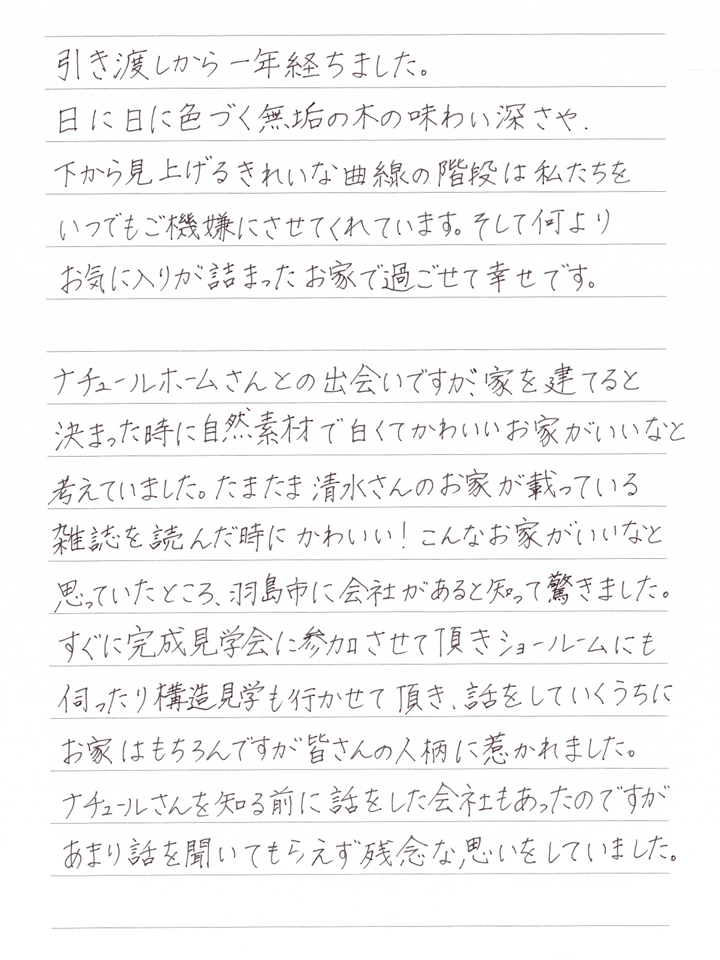 引き渡しから一年経ちました。
日に日に色づく無垢の木の味わい深さや、
下から見上げるきれいな曲線の階段は私たちを
いつでもご機嫌にさせてくれています。そして何より
お気に入りが詰まったお家で過ごせて幸せです。
ナチュールホームさんとの出会いですが、家を建てると
決まった時に自然素材で白くてかわいいお家がいいなと
考えていました。たまたま清水さんのお家が載っている
雑誌を読んだ時にかわいい！こんなお家がいいなと
思っていたところ、羽島市に会社があると知って驚きました。
すぐに完成見学会に参加させて頂きショールームにも
伺ったり構造見学も行かせて頂き、話をしていくうちに
お家はもちろんですが皆さんの人柄に惹かれました。
ナチュールさんを知る前に話をした会社もあったのですが
あまり話を聞いてもらえず残念な思いをしていました。